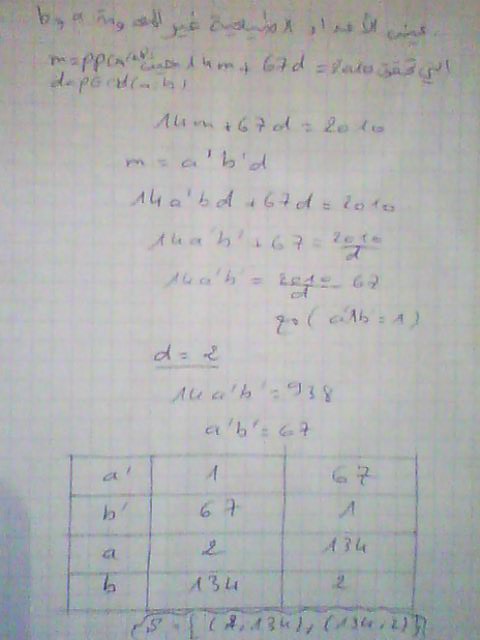 الأعداد الطبيعية غير المعدومة a و b
التي تحقق 14m + 67d = 2010 حيث m = PPCM
d = PGCD(a, b)
14m + 67d = 2010
m = a'b'd
14a'bd + 67d = 2010
14a'b' + 67 = 2010/d
14a'b' = 2010/d - 67
(a'∧b = 1)
d = 2
14a'b' = 938
a'b' = 67
a' 1 67
b' 67 1
a 2 134
b 134 2
S = {(2, 134), (134, 2)}